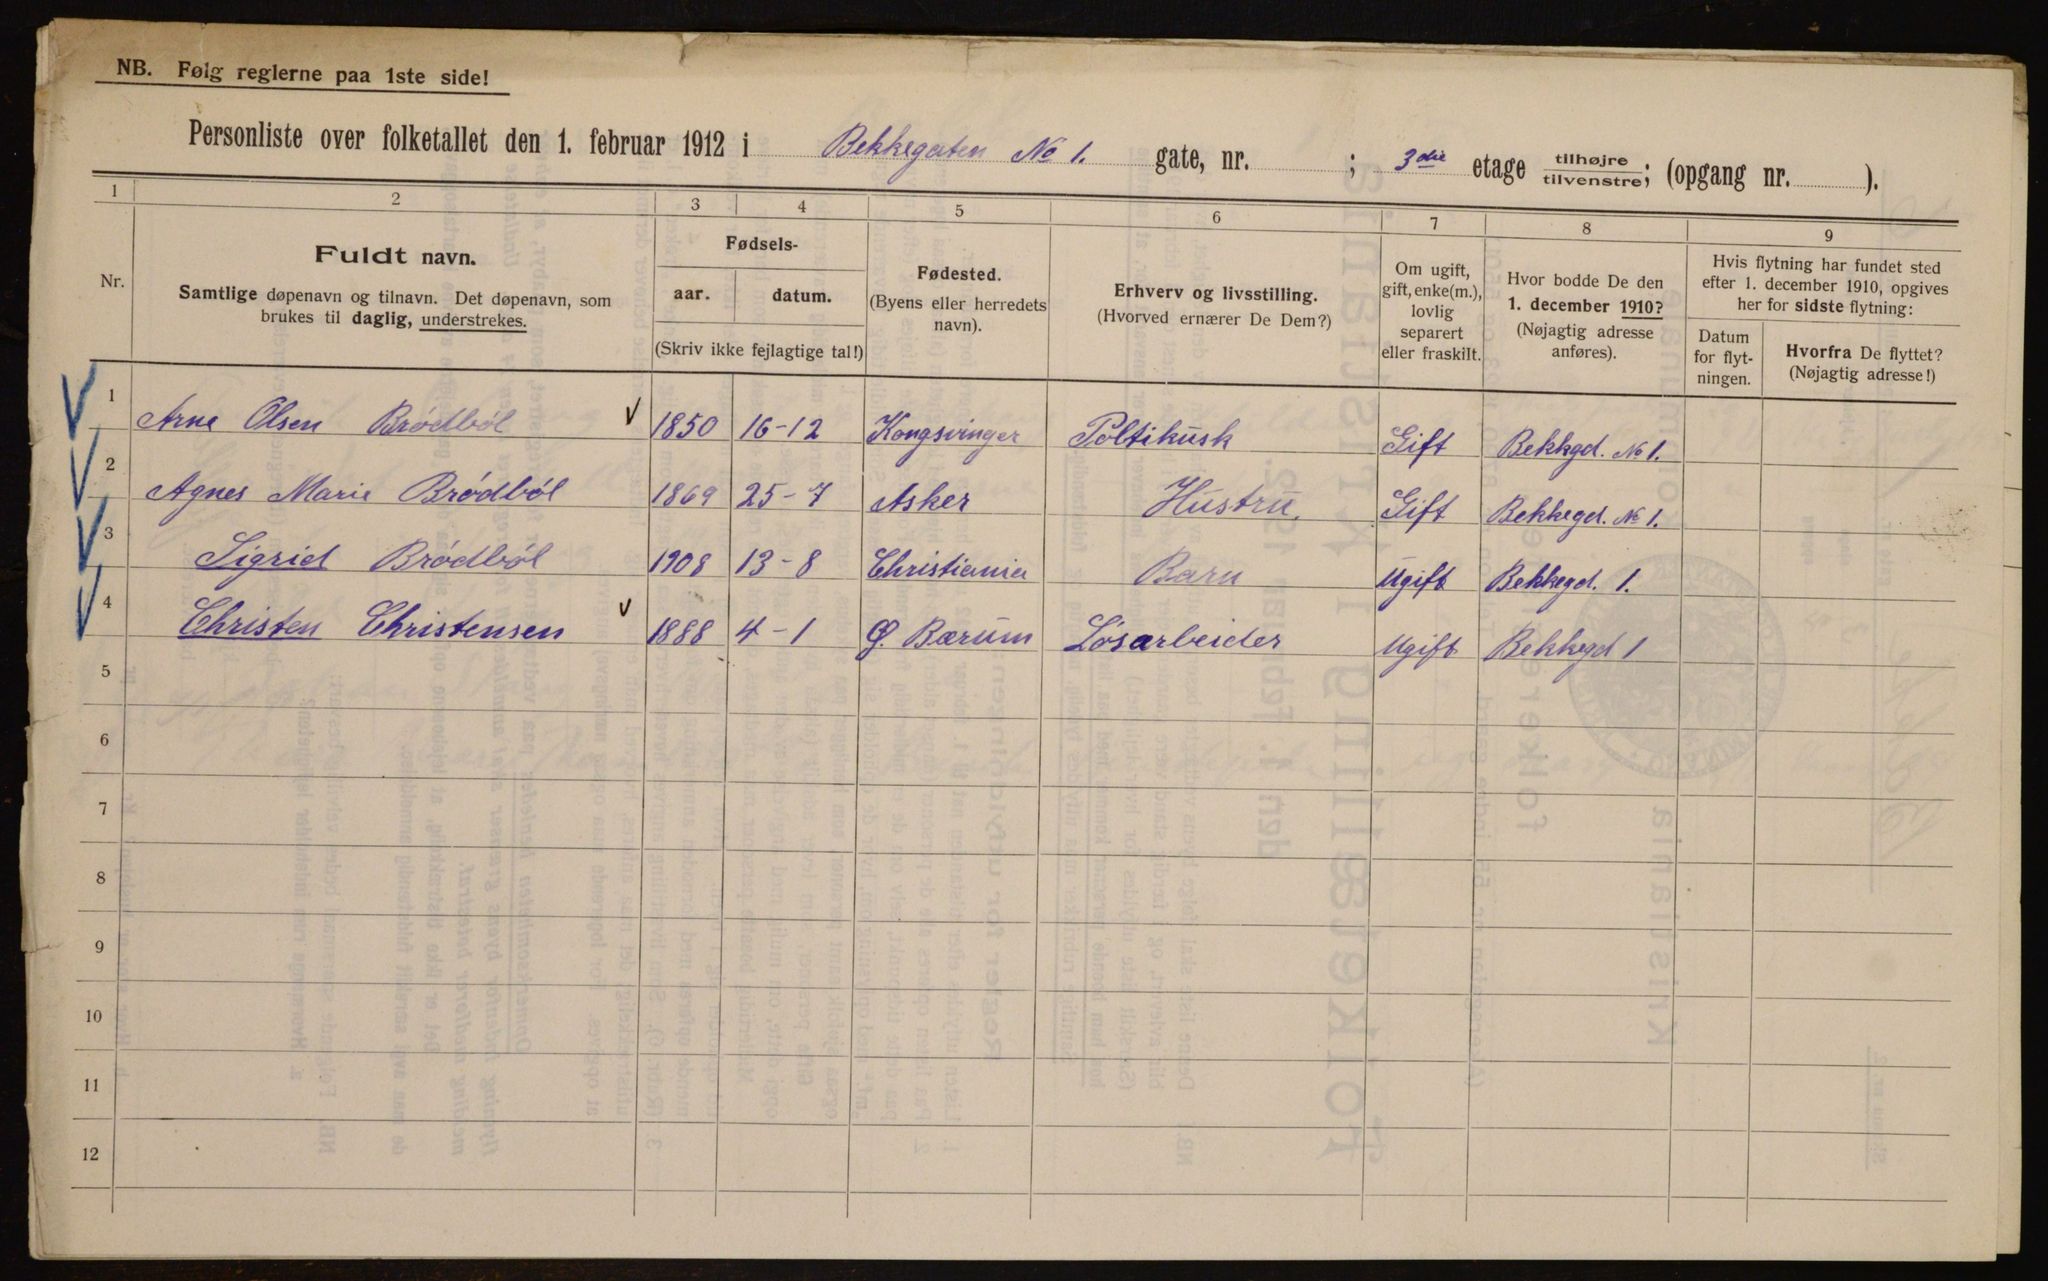 NB. Følg reglerne paa 1ste side!
Personliste over folketallet den 1. februar 1912 i Bekkegaten No 1. gate, nr. ; 3die etage tilhøjre/tilvenstre; (opgang nr. ).
1 2 3 4 5 6 7 8 9
Nr.
Fuldt navn.
Samtlige døpenavn og tilnavn. Det døpenavn, som
brukes til daglig, understrekes.
Fødsels-
aar. datum.
(Skriv ikke fejlagtige tal!)
Fødested.
(Byens eller herredets
navn).
Erhverv og livsstilling.
(Hvorved ernærer De Dem?)
Om ugift,
gift, enke(m.),
lovlig
separert
eller fraskilt.
Hvor bodde De den
1. december 1910?
(Nøjagtig adresse
anføres).
Hvis flytning har fundet sted
efter 1. december 1910, opgives
her for sidste flytning:
Datum
for flyt-
ningen.
Hvorfra De flyttet?
(Nøjagtig adresse!)
1 Arne Olsen Brødbøl 1850 16-12 Kongsvinger Poltikusk Gift Bekkgd. No 1.
2 Agnes Marie Brødbøl 1869 25-7 Asker Hustru. Gift Bekkegd. No 1.
3 Sigrid Brødbøl 1908 13-8 Christiania Barn Ugift Bekkegd. 1.
4 Christen Christensen 1888 4-1 Ø. Bærum Løsarbeider Ugift Bekkegd 1
5
6
7
8
9
10
11
12